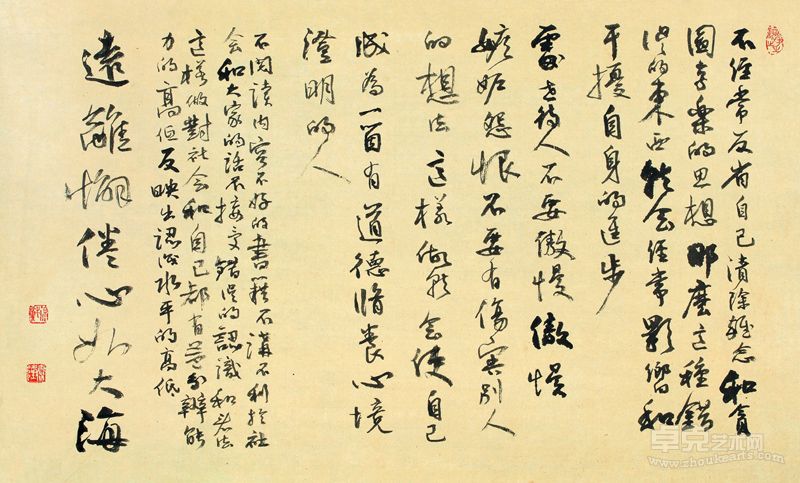 不經常反省自己清除雜念和貪
圖享樂的思想那麼这種錯
误的東西就会经常影響和
干擾自身的進步
處世待人不要傲慢傲慢
嫉妒怨恨不要有傷害别人
的想法这樣做就会使自己
成為一個有道德修養心境
澄明的人
不閱讀内容不好的書籍不講不利於社
会和大家的話不接受錯误的認識和看法
这樣做對社会和自己都有益分辨能
力的高低反映出認识水平的高低
遠離懈倦心如大海
卓克艺术网
www.zhoukearts.com